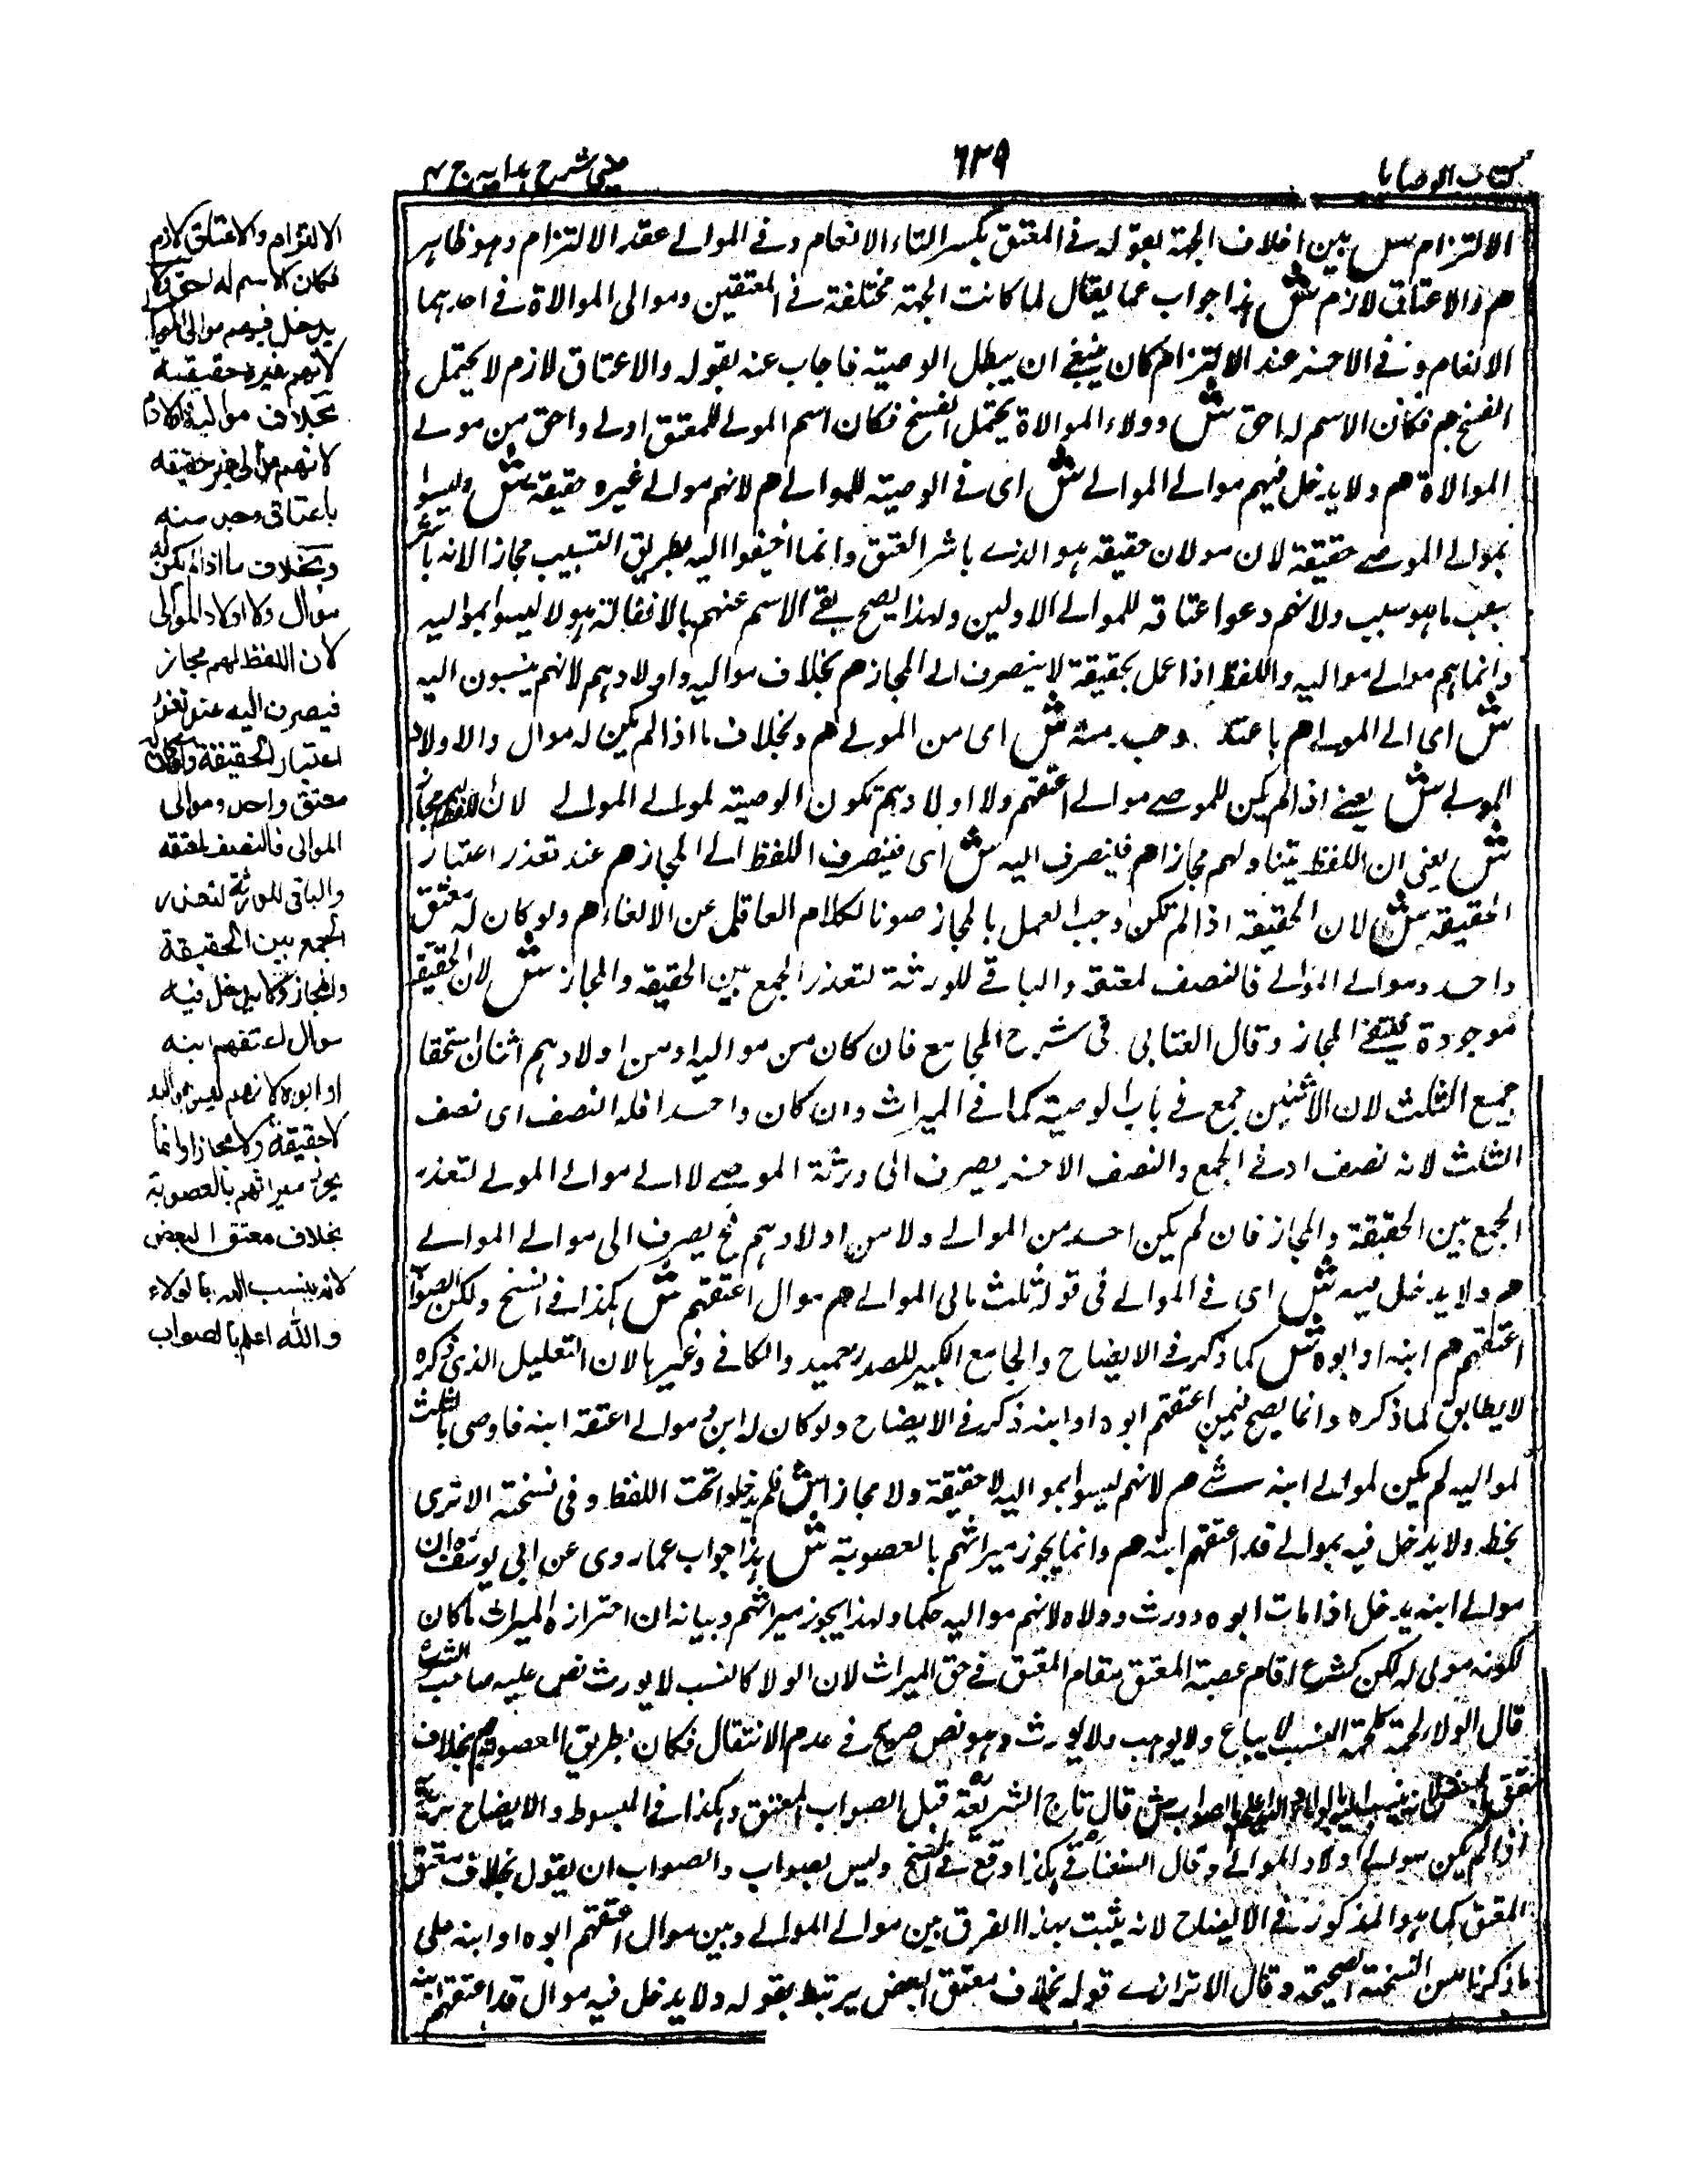 كتاب الوصايا
٦٣٩
عيني شرح هدايه ج ٤
الالتزام ش بين اختلاف الجهة بقوله في المعتق بكسر التاء الانعام وفي الموالي عقد الالتزام وهو ظاهر
هم والاعتاق لازم ش هذا جواب عما يقال لما كانت الجهة مختلفة في المعتقين وموالى الموالاة في احدهما
الانعام وفي الاخر عند الالتزام كان ينبغي ان يبطل الوصية فاجاب عنه بقوله والاعتاق لازم لا يحتمل
الفسخ هم فكان الاسم له احق ش وولاء الموالاة يحتمل الفسخ فكان اسم المولى للمعتق اولى واحق من مولى
الموالاة هم ولا يدخل فيهم موالي الموالي ش اى في الوصية للموالي هم لانهم موالي غيره حقيقة ش وليسوا
بموالي الموصي حقيقة لان مولاه حقيقة هو الذي باشر العتق وانما اضيفوا اليه بطريق التسبيب مجازا لانه
بسبب ما هو سبب ولائهم دعوا عتاقه للموالي الاولين ولهذا يصح بقي الاسم عنهم بالانفا لة هولا ليسوا بمواليه
وانما هم موالي مواليه واللفظ اذا عمل بحقيقة لا ينصرف الى المجاز هم بخلاف مواليه واولادهم لانهم ينسبون اليه
ش اى الى الموالي هم باعتاق وجد منه ش اى من المولى هم وبخلاف ما اذا لم يكن له موال ولا اولاد
الموالي ش يعنى اذا لم يكن للموصي موالي اعتقهم ولا اولادهم تكون الوصية لموالي الموالي لان اللفظ لهم مجاز
ش يعنى ان اللفظ يتناولهم مجازا هم فينصرف اليه ش اى فينصرف اللفظ الى المجاز هم عند تعذر اعتبار
الحقيقة ش لان الحقيقة اذا لم تكن وجب العمل بالمجاز صونا لكلام العاقل عن الالغاء هم ولو كان له معتق
واحد وموالي الموالي فالنصف لمعتقه والباقي للورثة لتعذر الجمع بين الحقيقة والمجاز ش لان الحقيقة
موجودة فينتفي المجاز وقال العتابي في شرح الجامع فان كان من مواليه او من اولادهم اثنان استحقا
جميع الثلث لان الاثنين جمع في باب الوصية كما في الميراث وان كان واحدا فله النصف اى نصف
الثلث لانه نصف ادنى الجمع والنصف الاخر يصرف الى ورثة الموصي لا الى موالي الموالي لتعذر
الجمع بين الحقيقة والمجاز فان لم يكن احد من الموالي ولا من اولادهم فح يصرف الى موالي الموالي
هم ولا يدخل فيه ش اى في الموالي في قوله ثلث مالى لموالي هم موال اعتقهم ش هكذا في النسخ ولكن الصواب
اعتقهم هم ابنه او ابوه ش كما ذكر في الايضاح والجامع الكبير للصدر حميد والكافي وغيرها لان التعليل الذى ذكره
لا يطابق لما ذكره وانما يصح فيمن اعتقهم ابوه او ابنه ذكر في الايضاح ولو كان له ابن موالي اعتقه ابنه فاوصى بالثلث
لمواليه لم يكن لموالي ابنه شئ هم لانهم ليسوا بمواليه لا حقيقة ولا مجازا ش فلم يدخلوا تحت اللفظ وفى نسخة الاترى
بخطه ولا يدخل فيه موالي قد اعتقهم ابنه هم وانما يجوز ميراثهم بالعصوبة ش هذا جواب عما روى عن ابى يوسف ان
موالي ابنه يدخل اذا مات ابوه وورث وولاه لانهم مواليه حكما ولهذا يجوز ميراثهم وبيانه ان احتراز الميراث ما كان
لكونه مولى له لكن الشرع اقام عصبة المعتق مقام المعتق في حق الميراث لان الولا كالنسب لا يورث نص عليه صاحب الشرع
قال الولاء لحمة كلحمة النسب لا يباع ولا يوهب ولا يورث وهو نص صريح في عدم الانتقال فكان بطريق العصوبة هم بخلاف
معتق البعض لانه ينسب اليه بالولاء والله اعلم بالصواب ش قال تاج الشريعة قبل الصواب المعتق وهكذا في المبسوط والايضاح
اذا لم يكن موالي اولاد الموالي وقال السغناقي هكذا وقع في النسخ وليس بصواب والصواب ان يقول بخلاف معتق
المعتق كما هو المذكور في الايضاح لانه يثبت بهذا الفرق بين موالي الموالي وبين موال اعتقهم ابوه او ابنه على
ما ذكرنا من النسخة الصحيحة وقال الاترازي قوله بخلاف معتق البعض يرتبط بقوله ولا يدخل فيه موال قد اعتقهم ابنه
الالتزام والاعتاق لازم
فكان الاسم له احق ولا
يدخل فيهم موالى الموالي
لانهم غيره حقيقة
بخلاف مواليه واولادهم
لانهم
باعتاق وجد منه
وبخلاف ما اذا لم يكن له
موال ولا اولاد الموالى
لان اللفظ لهم مجاز
فيصرف اليه عند تعذر
اعتبار الحقيقة ولو كان له
معتق واحد وموالى
الموالى فالنصف لمعتقه
والباقى للورثة لتعذر
الجمع بين الحقيقة
والمجاز ولا يدخل فيه
موال اعتقهم ابنه
او ابوه لانهم ليسوا بمواليه
لا حقيقة ولا مجازا وانما
يجوز ميراثهم بالعصوبة
بخلاف معتق البعض
لانه ينسب اليه بالولاء
والله اعلم بالصواب